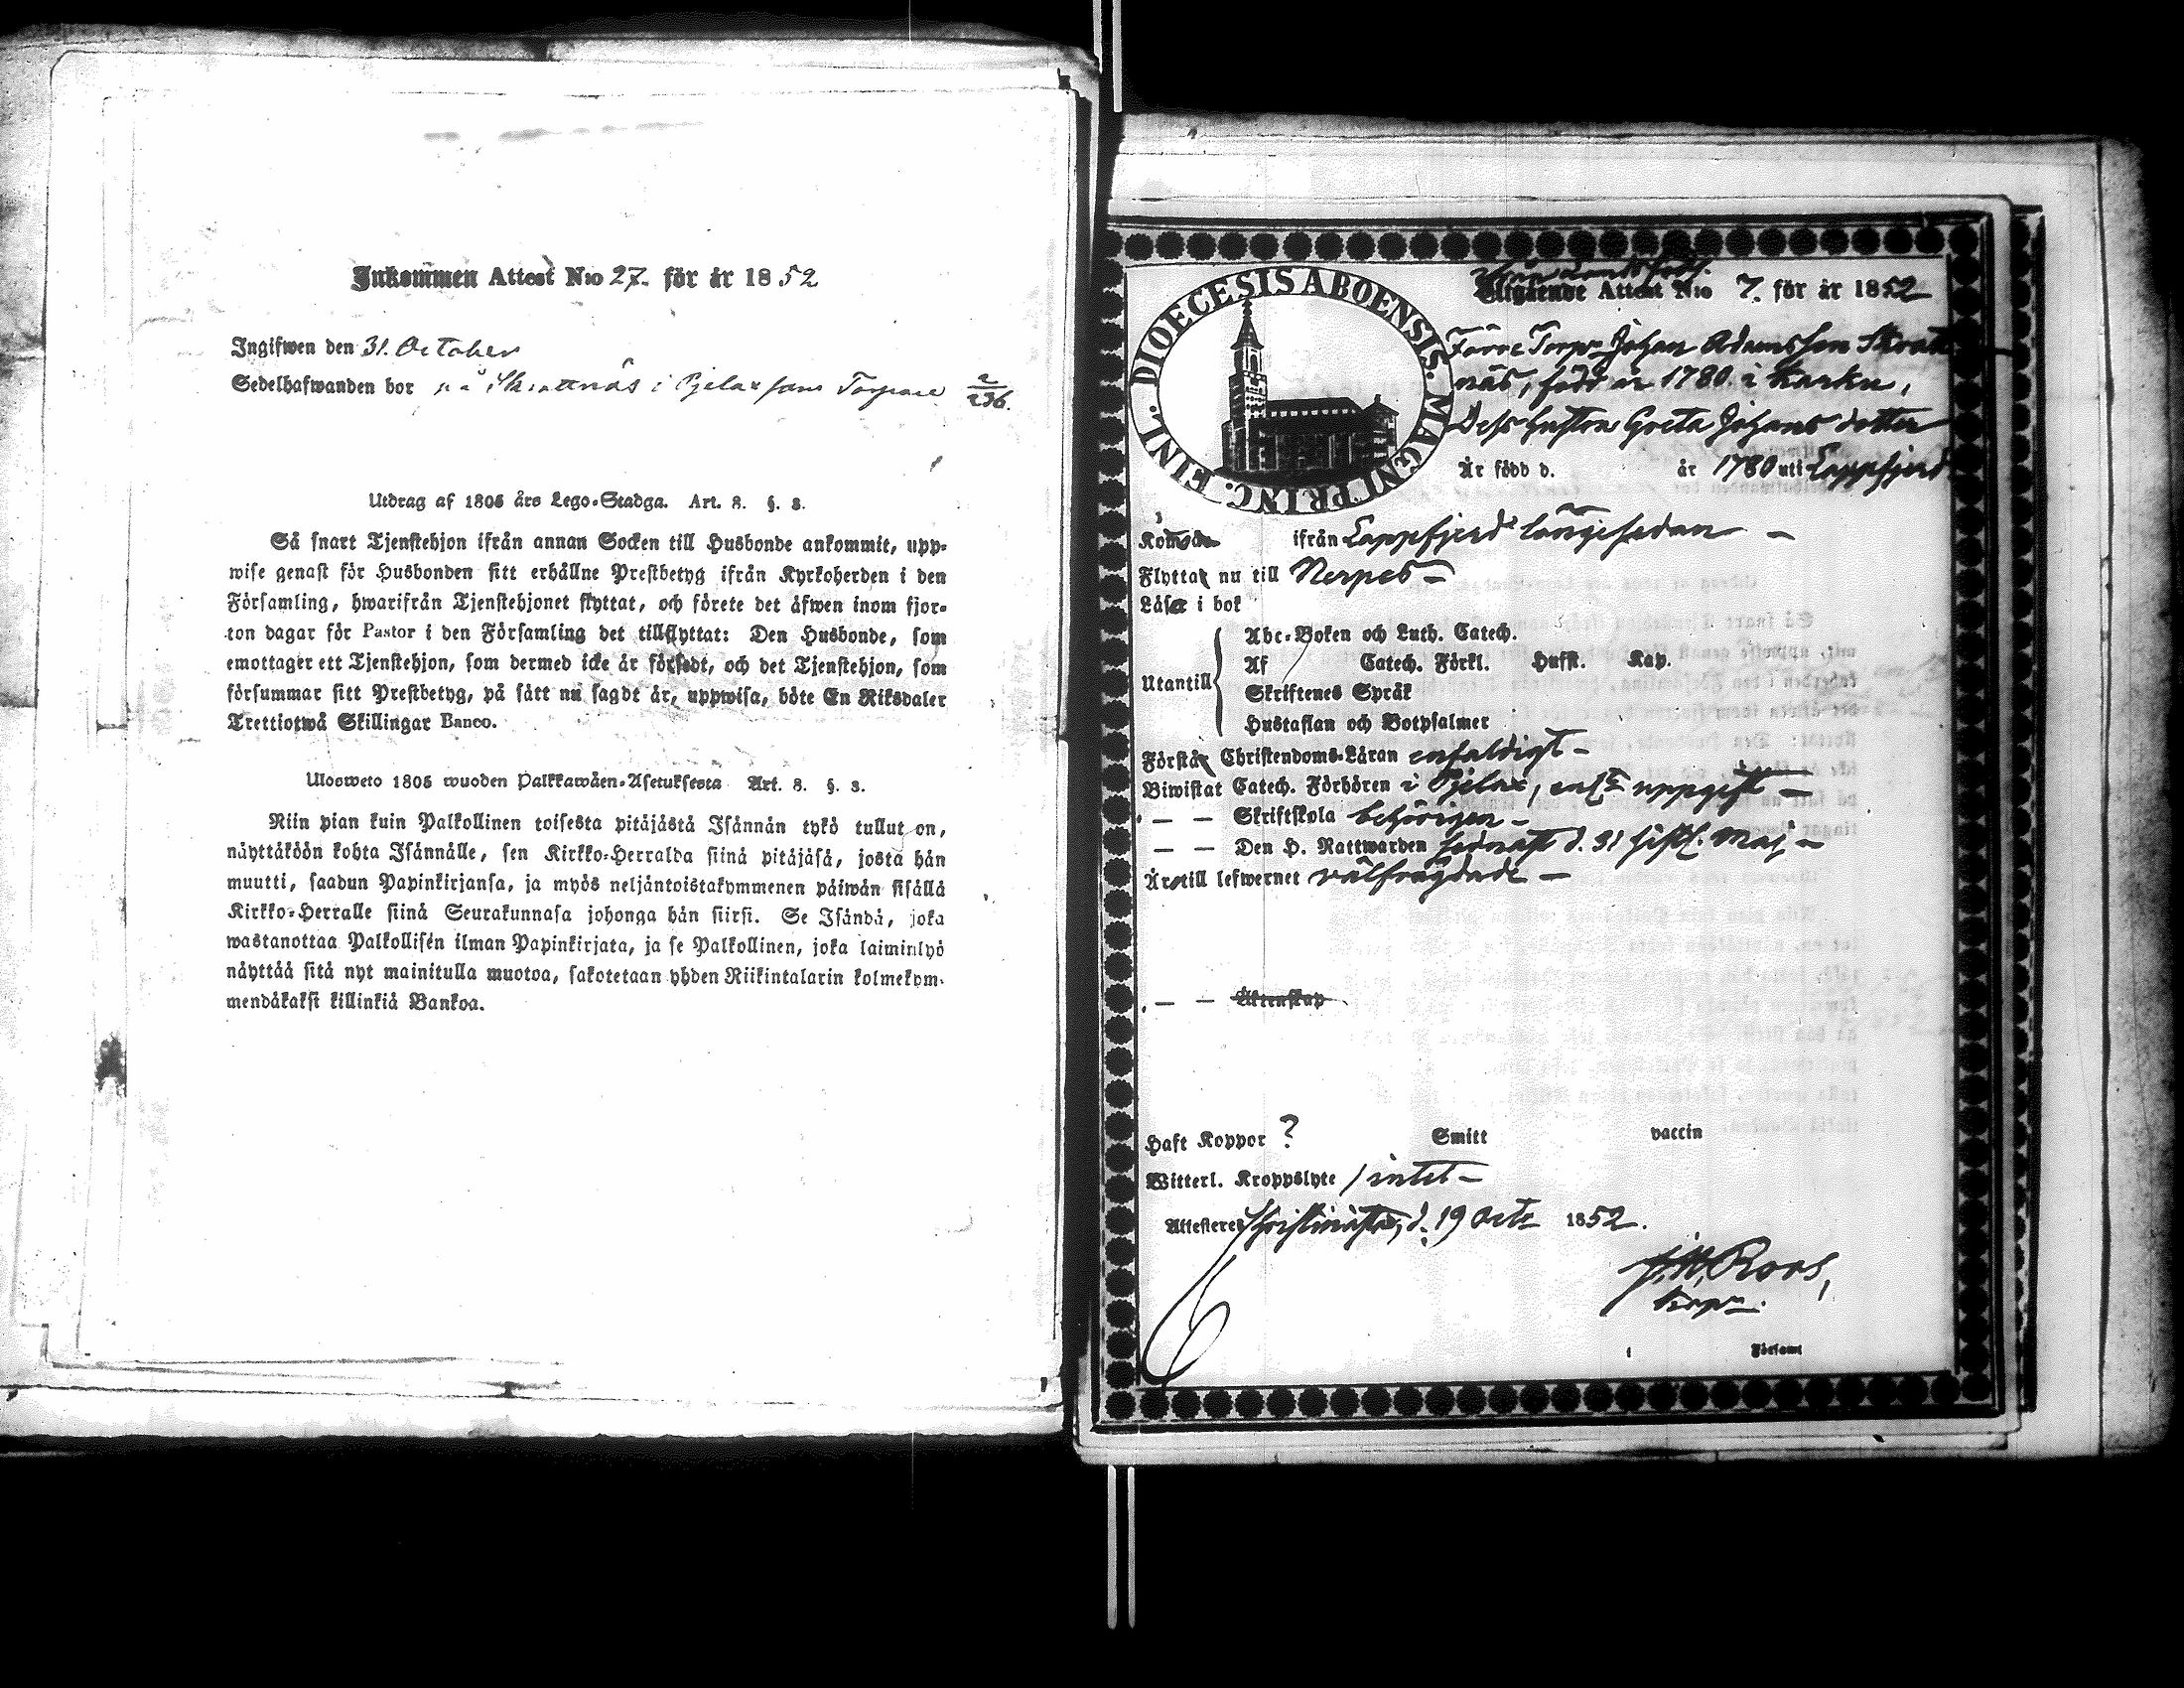 Inkommen Attest N:o 27. för år 1852
Ingifwen den 31. October
Sedelhafwanden bor på Skrattnäs i Pjelax som Torpare 2/236.
Utdrag af 1805 års Lego-Stadga. Art. 8. §. 3.
Så snart Tjenstehjon ifrån annan Socken till Husbonde ankommit, upp-
wise genast för Husbonden sitt erhållne Prestbetyg ifrån Kyrkoherden i den
Församling, hwarifrån Tjenstehjonet flyttat, och förete det äfwen inom fjor-
ton dagar för Pastor i den Församling det tillflyttat: Den Husbonde, som
emottager ett Tjenstehjon, som dermed icke är försedt, och det Tjenstehjon, som
försummar sitt Prestbetyg, på sätt nu sagdt är, uppwisa, böte En Riksdaler
Trettiotwå Skillingar Banco.
Ulosweto 1805 wuoden Palkkawäen-Asetuksesta Art. 8. §. 3.
Niin pian kuin Palkollinen toisesta pitäjästä Isännän tykö tullut on,
näyttäköön kohta Isännälle, sen Kirkko-Herralda siinä pitäjäsä, josta hän
muutti, saadun Papinkirjansa, ja myös neljäntoistakymmenen päiwän sisällä
Kirkko-Herralle siinä Seurakunnasa johonga hän siirsi. Se Isändä, joka
wastanottaa Palkollisen ilman Papinkirjata, ja se Palkollinen, joka laiminlyö
näyttää sitä nyt mainitulla muotoa, sakotetaan yhden Riikintalarin kolmekym-
mendäkaksi killinkiä Bankoa.
DIOECESIS ABOENSIS MAGNI PRINC. FINL.
Utgående Attest N:o 7. för år 1852
Förre Torp. Johan Adamsson Skratt
näs, född år 1780 i Karku,
Dess hustru Greta Johans dotter
Är född d. år 1780 uti Lappfjerd
ifrån Lappfjerd längesedan –
Flytta nu till Nerpes –
Läsa i bok
Abc-Boken och Luth. Catech.
Utantill Af Catech. Förkl. Huffl. Kap.
Skriftenes Språk
Hustaflan och Botpsalmer
Förstå Christendoms-Läran enfaldigt –
Biwistat Catech. Förhören i Pjelax, enl. uppgift –
— — Skriftskola behörigen –
— — Den H. Nattwarden sednast d. 31 sistl. Maj –
Är till lefwernet välfrägdade –
— — Äktenskap
Haft Koppor ? Smitt vaccin
Witterl. Kroppslyte intet –
Attesteres Christinestad, d. 19 Octr 1852.
Roos,
Kapn.
i Församl